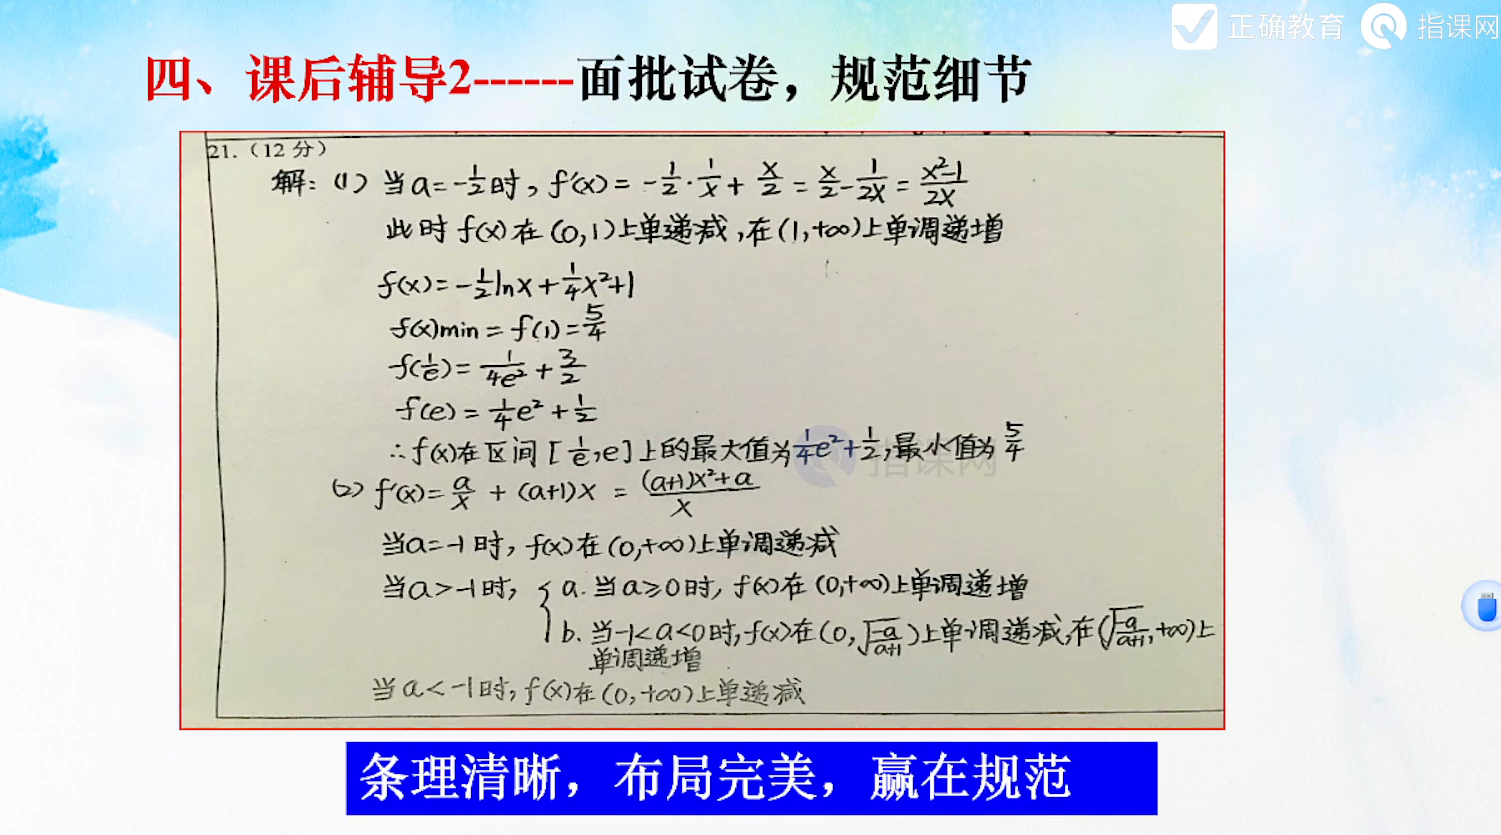 正确教育 指课网
四、课后辅导2------面批试卷，规范细节
21.（12 分）
解：(1) 当a=-1/2时，f'(x)=-1/2·1/x+x/2=x/2-1/2x=x²-1/2x
此时f(x)在(0,1)上单递减,在(1,+∞)上单调递增
f(x)=-1/2lnx+1/4x²+1
f(x)min=f(1)=5/4
f(1/e)=1/4e²+3/2
f(e)=1/4e²+1/2
∴f(x)在区间[1/e,e]上的最大值为1/4e²+1/2,最小值为5/4
指课网
(2) f'(x)=a/x+(a+1)x=(a+1)x²+a/x
当a=-1时，f(x)在(0,+∞)上单调递减
当a>-1时，{a.当a≥0时,f(x)在(0,+∞)上单调递增
b.当-1<a<0时,f(x)在(0,√-a/a+1)上单调递减,在(√-a/a+1,+∞)上
单调递增
当a<-1时,f(x)在(0,+∞)上单递减
条理清晰，布局完美，赢在规范